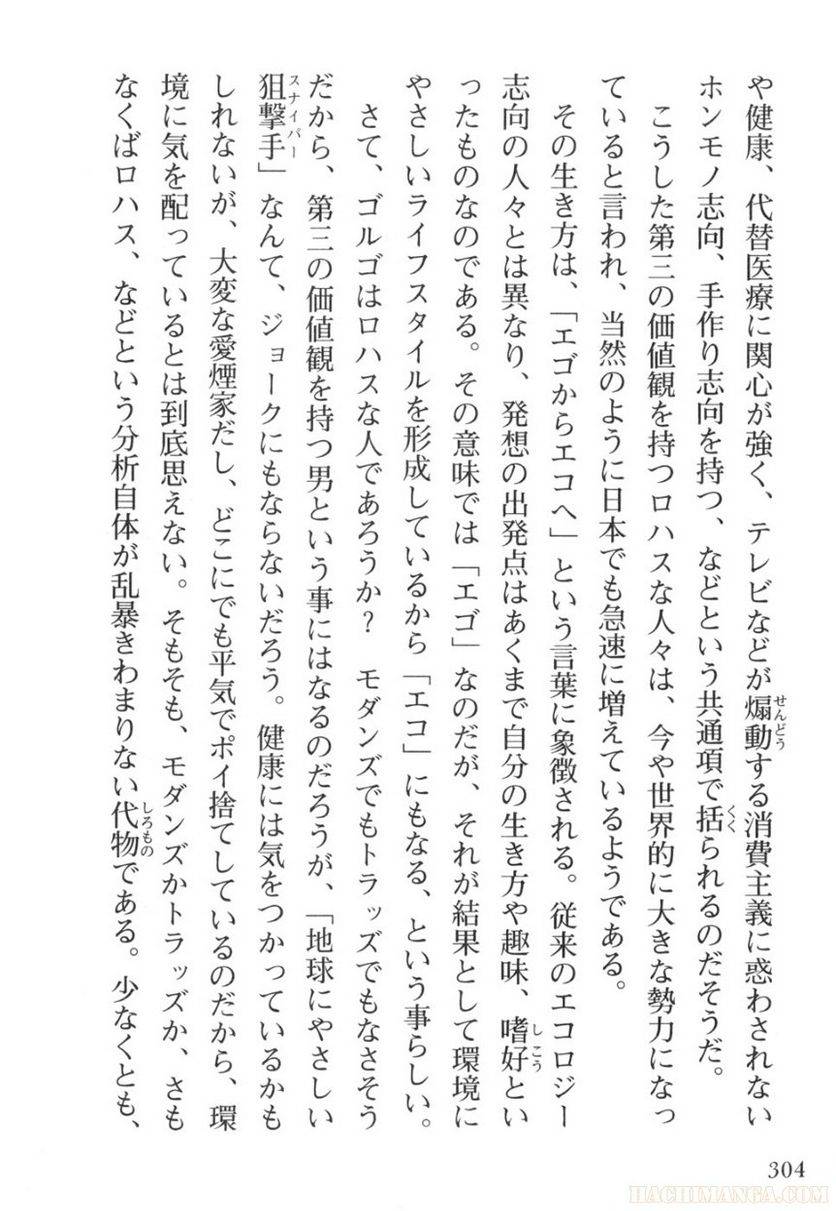 や健康、代替医療に関心が強く、テレビなどが煽動する消費主義に惑わされない
せんどう
ホンモノ志向、手作り志向を持つ、などという共通項で括られるのだそうだ。
くく
こうした第三の価値観を持つロハスな人々は、今や世界的に大きな勢力になっ
ていると言われ、当然のように日本でも急速に増えているようである。
その生き方は、「エゴからエコへ」という言葉に象徴される。従来のエコロジー
志向の人々とは異なり、発想の出発点はあくまで自分の生き方や趣味、嗜好とい
しこう
ったものなのである。その意味では「エゴ」なのだが、それが結果として環境に
やさしいライフスタイルを形成しているから「エコ」にもなる、という事らしい。
さて、ゴルゴはロハスな人であろうか? モダンズでもトラッズでもなさそう
だから、第三の価値観を持つ男という事にはなるのだろうが、「地球にやさしい
狙撃手」なんて、ジョークにもならないだろう。健康には気をつかっているかも
スナイパー
しれないが、大変な愛煙家だし、どこにでも平気でポイ捨てしているのだから、環
境に気を配っているとは到底思えない。そもそも、モダンズかトラッズか、さも
なくばロハス、などという分析自体が乱暴きわまりない代物である。少なくとも、
しろもの
304
HACHIMANGA.COM